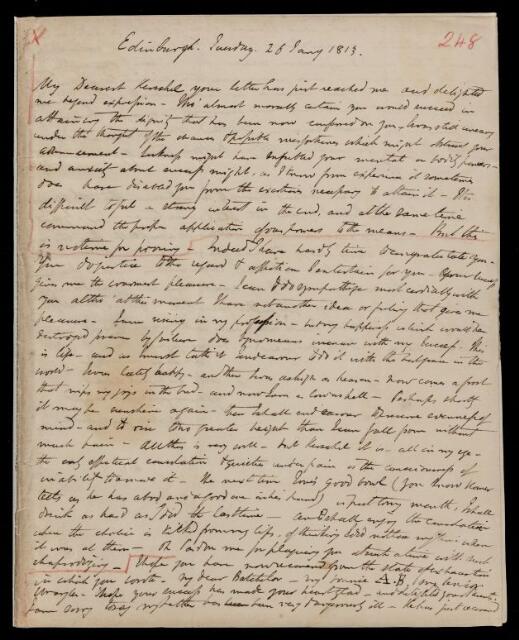 X
248
Edinburgh. Tuesday. 26 Jany 1813.
My Dearest Herschel your letter has just reached me and delighted
me beyond expression - tho' almost morally certain you would succeed in
attaining the dignity that has been now conferred on you, I was still uneasy
under the thought of the chances & possible misfortunes which might obstruct your
advancement - Sickness might have enfeebled your mental or bodily powers -
and anxiety about success might, as I know from experience it sometimes
does have disabled you from the exertions necessary to attain it - It is
difficult to feel a strong interest in the end, and at the same time
command the proper application of our powers to the means. - But this
is no time for prosing - Indeed I have hardly time to congratulate you -
the regard & affection I entertain for you - your success
give me the warmest pleasure - I can & do sympathize most cordially with
you altho' at this moment I have not another idea or feeling that gives me
pleasure - I am rising in my profession - but my happiness which would be
destroyed by failure does by no means increase with my success. This
is life - and as I must I shall endeavour to do it with the best grace in the
world - I was lately happy - and then I was as high as heaven - now comes a frost
that nips my joys in the bud - and now I am as low as hell - Perhaps shortly
it may be sunshine again - then I shall endeavour to preserve evenness of
mind - and to rise to no greater height than I can fall from without
much pain - All this is very well - but Herschel it is all in my eye -
the only effectual consolation & quietus under pain is the consciousness of
inability to remove it - the next time Love's good bowl (you know Homer
tells us he has a bad and a good one in his hand) is put to my mouth, I shall
drink as hard as I did the last time - and shall enjoy the consolation
when the chalice is from my lips, of thinking I did not lose my time when
it was at them - Oh Pardon me for plaguing you at such a time with such
I hope you have now recovered from the state of exhaustion
in which you wrote - my dear Batchelor - my Junior A.B. (my Senior
Wrangler - I hope your success has made your heart glad - and delighted your Parents
I am sorry to say my father has been very dangerously ill - he has just recovered